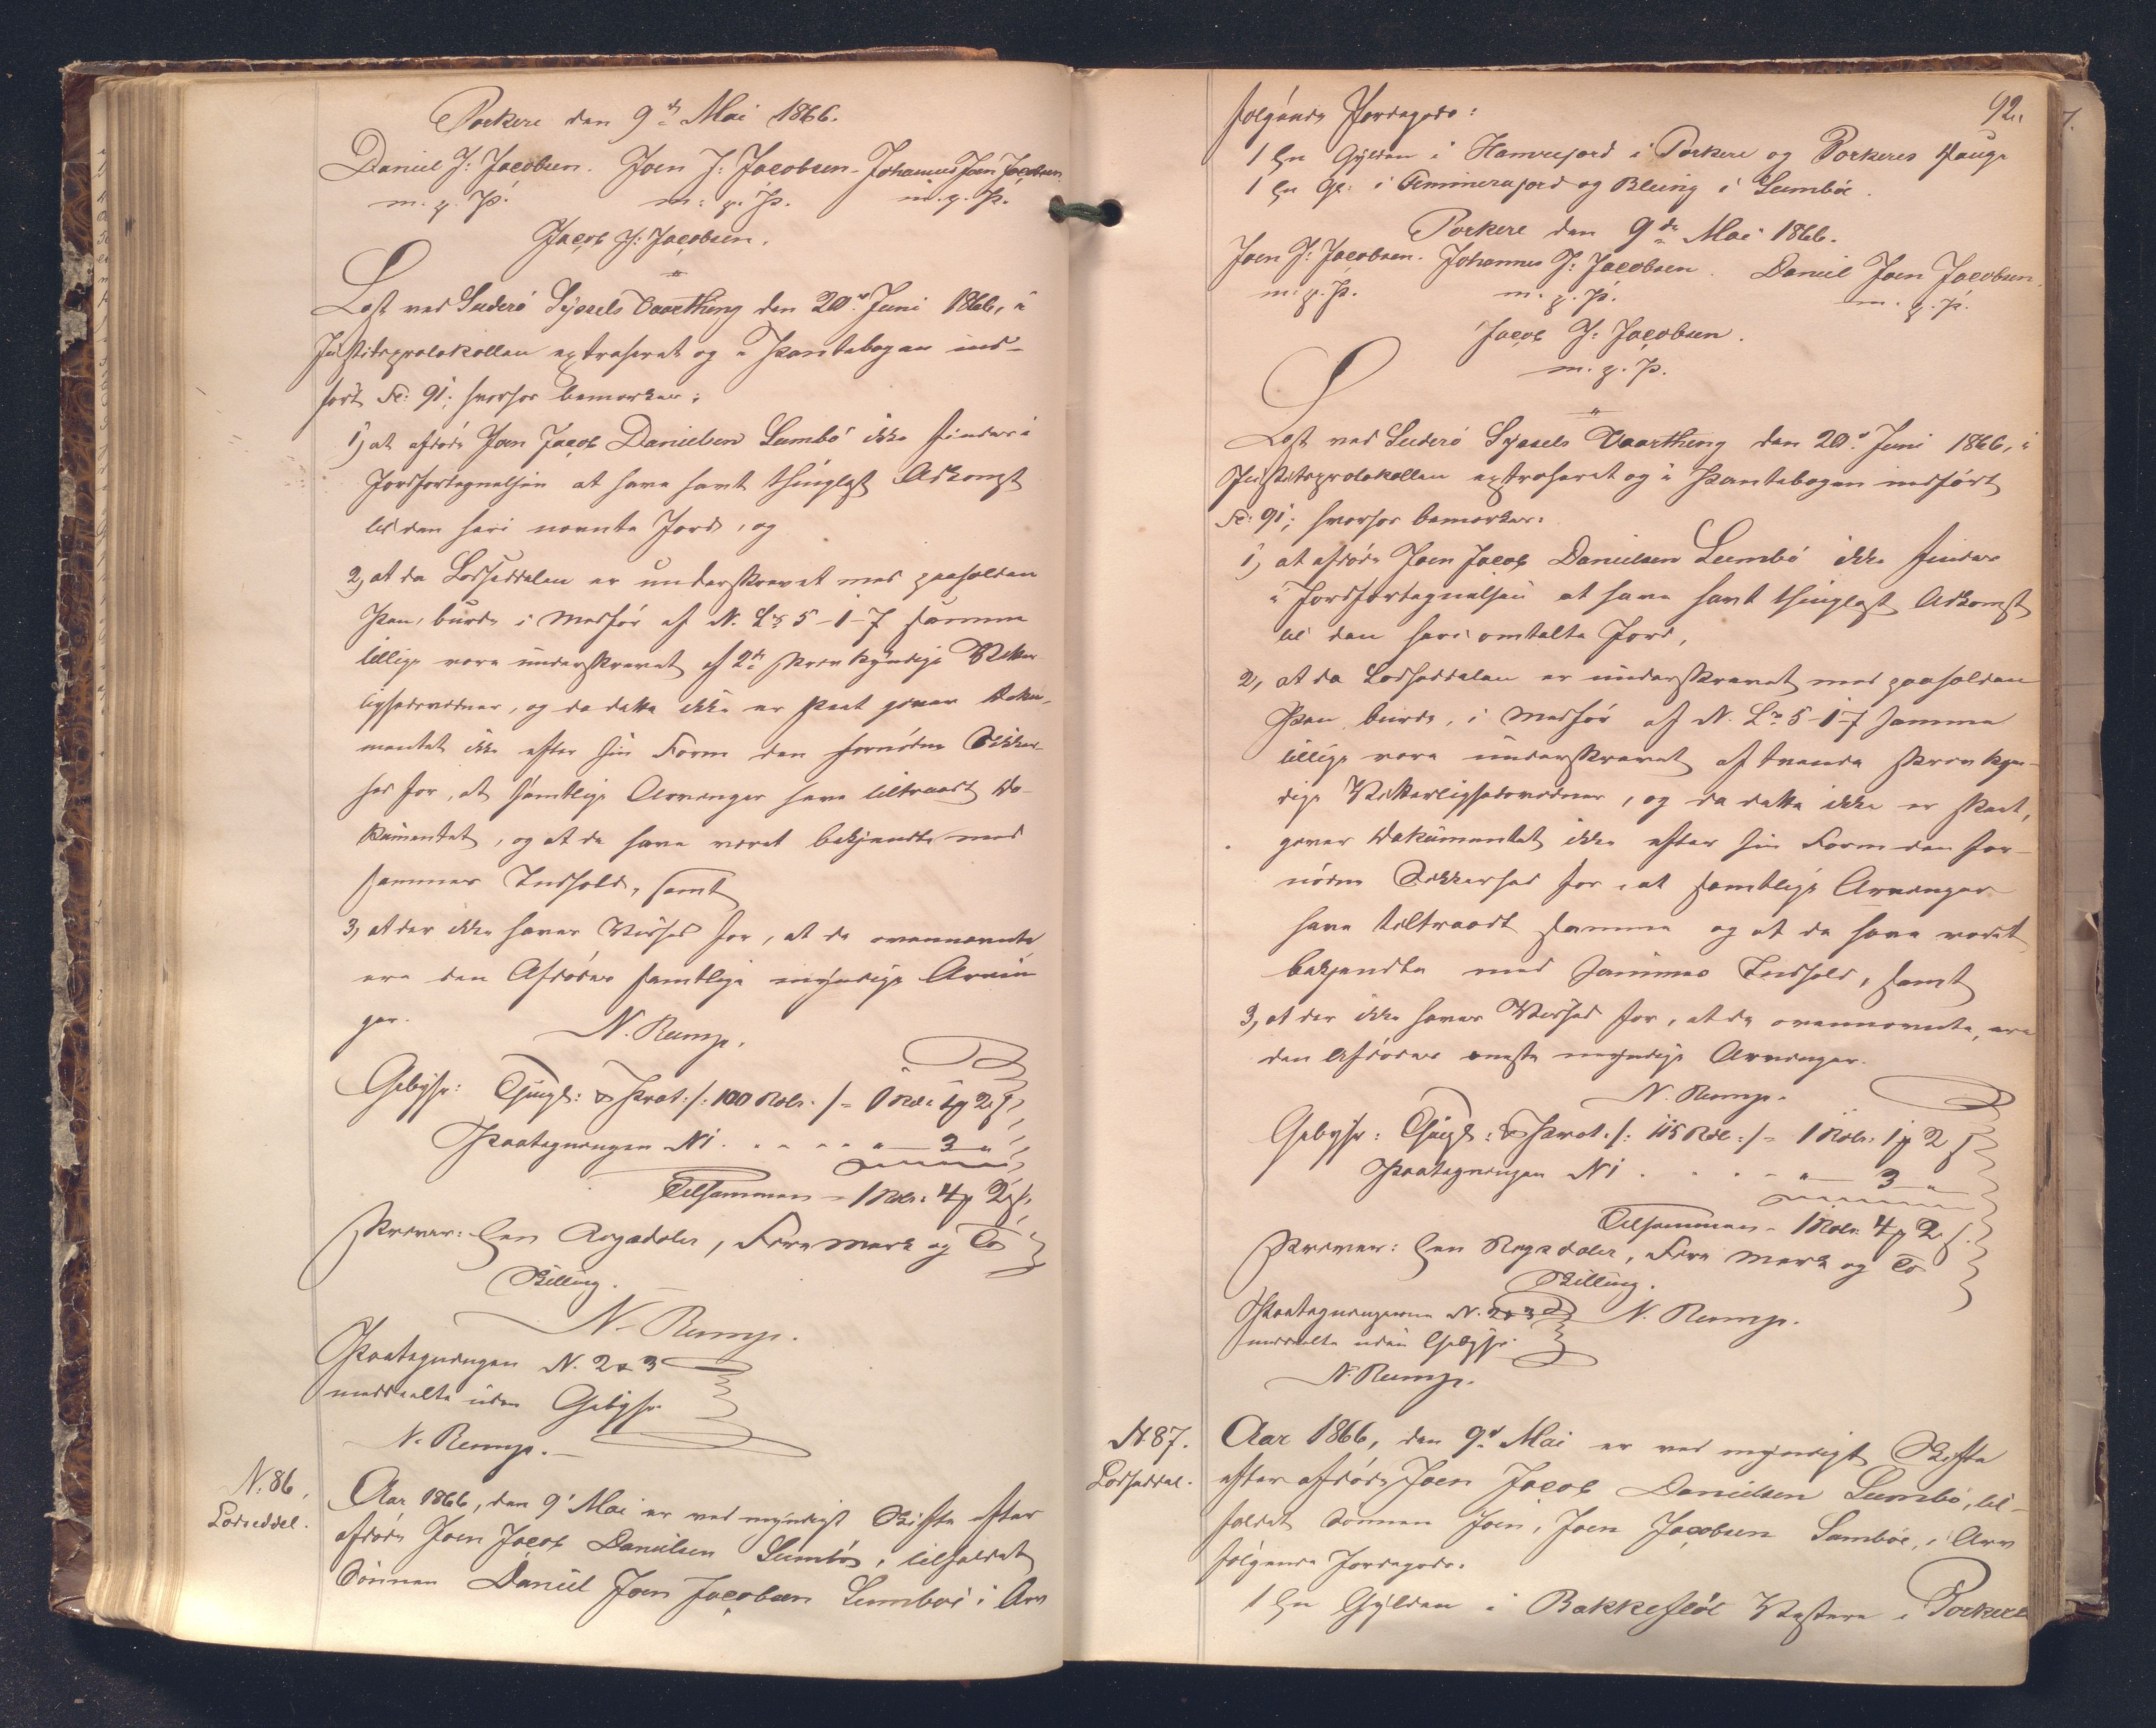 Porkere den 9de Mai 1866.
Daniel J: Jacobsen. Joen J: Jacobsen - Johannes Joen Jacobsen
m. p. P. m: p. P. m. p. P.
Jacob J: Jacobsen.
Læst ved Suderø Syssels Vaarthing den 20de Juni 1866, i
Justitsprotokollen extraheret og i Pantebogen ind-
ført Fo: 91; hvorhos bemærkes:
1, at afdøde Joen Jacob Danielsen Sumbø ikke findes i
Jordfortegnelsen at have havt thinglæst Adkomst
til den heri nævnte Jord, og
2, at da Lodseddelen er underskrevet med paaholden
Pen, burde i Medfør af N. L. 5-1-7 samme
tillige være underskrevet af 2de skrivkyndige Vitter-
lighedsvidner, og da dette ikke er skeet giver Doku-
mentet ikke efter sin Form den fornødne Sikker-
hed for, at samtlige Arvinger have tiltraadt Do-
kumentet, og at de have været bekjendte med
sammes Indhold, samt
3, at der ikke haves Vished for, at de ovennævnte
ere den Afdødes samtlige myndige Arvin
ger.
N. Rump.
Gebyhr: Thingl: & Prot: /: 100 Rdlr. / = 1 Rdlr 1 ꝟ 2 ẞ
Paategningen N 1 . . . . " 3 "
Tilsammen = 1 Rdlr: 4 ꝟ 2 ẞ.
skriver: Een Rigsdaler, Fire Mark og To
Skilling.
N. Rump.
Paategningen N. 2 & 3
meddeelte uden Gebyhr
N. Rump.
N. 86.
Lodseddel.
Aar 1866, den 9' Mai er ved myndigt Skifte efter
afdøde Joen Jacob Danielsen Sumbø, tilfaldet
Sønnen Daniel Joen Jacobsen Sumbøe i Arv
92.
følgende Jordegods:
1 En Gylden i Hamrejord i Porkere og Porkeres Hauge
1 En Gl: i Bleing i Sumbøe.
Porkere den 9de Mai 1866.
Joen J: Jacobsen. Johannes J: Jacobsen. Daniel Joen Jacobsen.
m. p. P. m. p. P. m. p. P.
Jacob J: Jacobsen.
m. p. P.
Læst ved Suderø Syssels Vaarthing den 20de Juni 1866, i
Justitsprotokollen extraheret og i Pantebogen indført
Fo: 91; hvorhos bemærkes:
1, at afdøde Joen Jacob Danielsen Sumbø ikke findes
i Jordfortegnelsen at have havt thinglæst Adkomst
til den heri omtalte Jord,
2, at da Lodseddelen er underskrevet med paaholden
Pen, burde, i Medfør af N. L. 5-1-7 samme
tillige være underskrevet af tvende skrivkyn-
dige Vitterlighedsvidner, og da dette ikke er skeet,
giver Dokumentet ikke efter sin Form den for-
nødne Sikkerhed for, at samtlige Arvinger
have tiltraadt samme og at de have været
bekjendte med sammes Indhold, samt
3, at der ikke haves Vished for, at de ovennævnte, ere
den Afdødes eneste myndige Arvinger.
N. Rump.
Gebyhr: Thingl: & Prot. /: 115 Rdl: / = 1 Rdlr: 1 ꝟ 2 ẞ
Paategningen N 1 . . . . " 3 "
Tilsammen - 1 Rdlr. 4 ꝟ 2 ẞ.
skriver: Een Rigsdaler, Fire Mark og To
Skilling.
Paategningerne N. 2 & 3 N. Rump.
meddeelte uden Gebyhr.
N. Rump.
N. 87.
Lodseddel.
Aar 1866, den 9de Mai er ved myndigt Skifte
efter afdøde Joen Jacob Danielsen Sumbø, til-
faldet Sønnen Joen, Joen Jacobsen Sumbøe, i Arv
følgende Jordegods.
1 En Gylden i Bakkefløe Vestere i Porkere